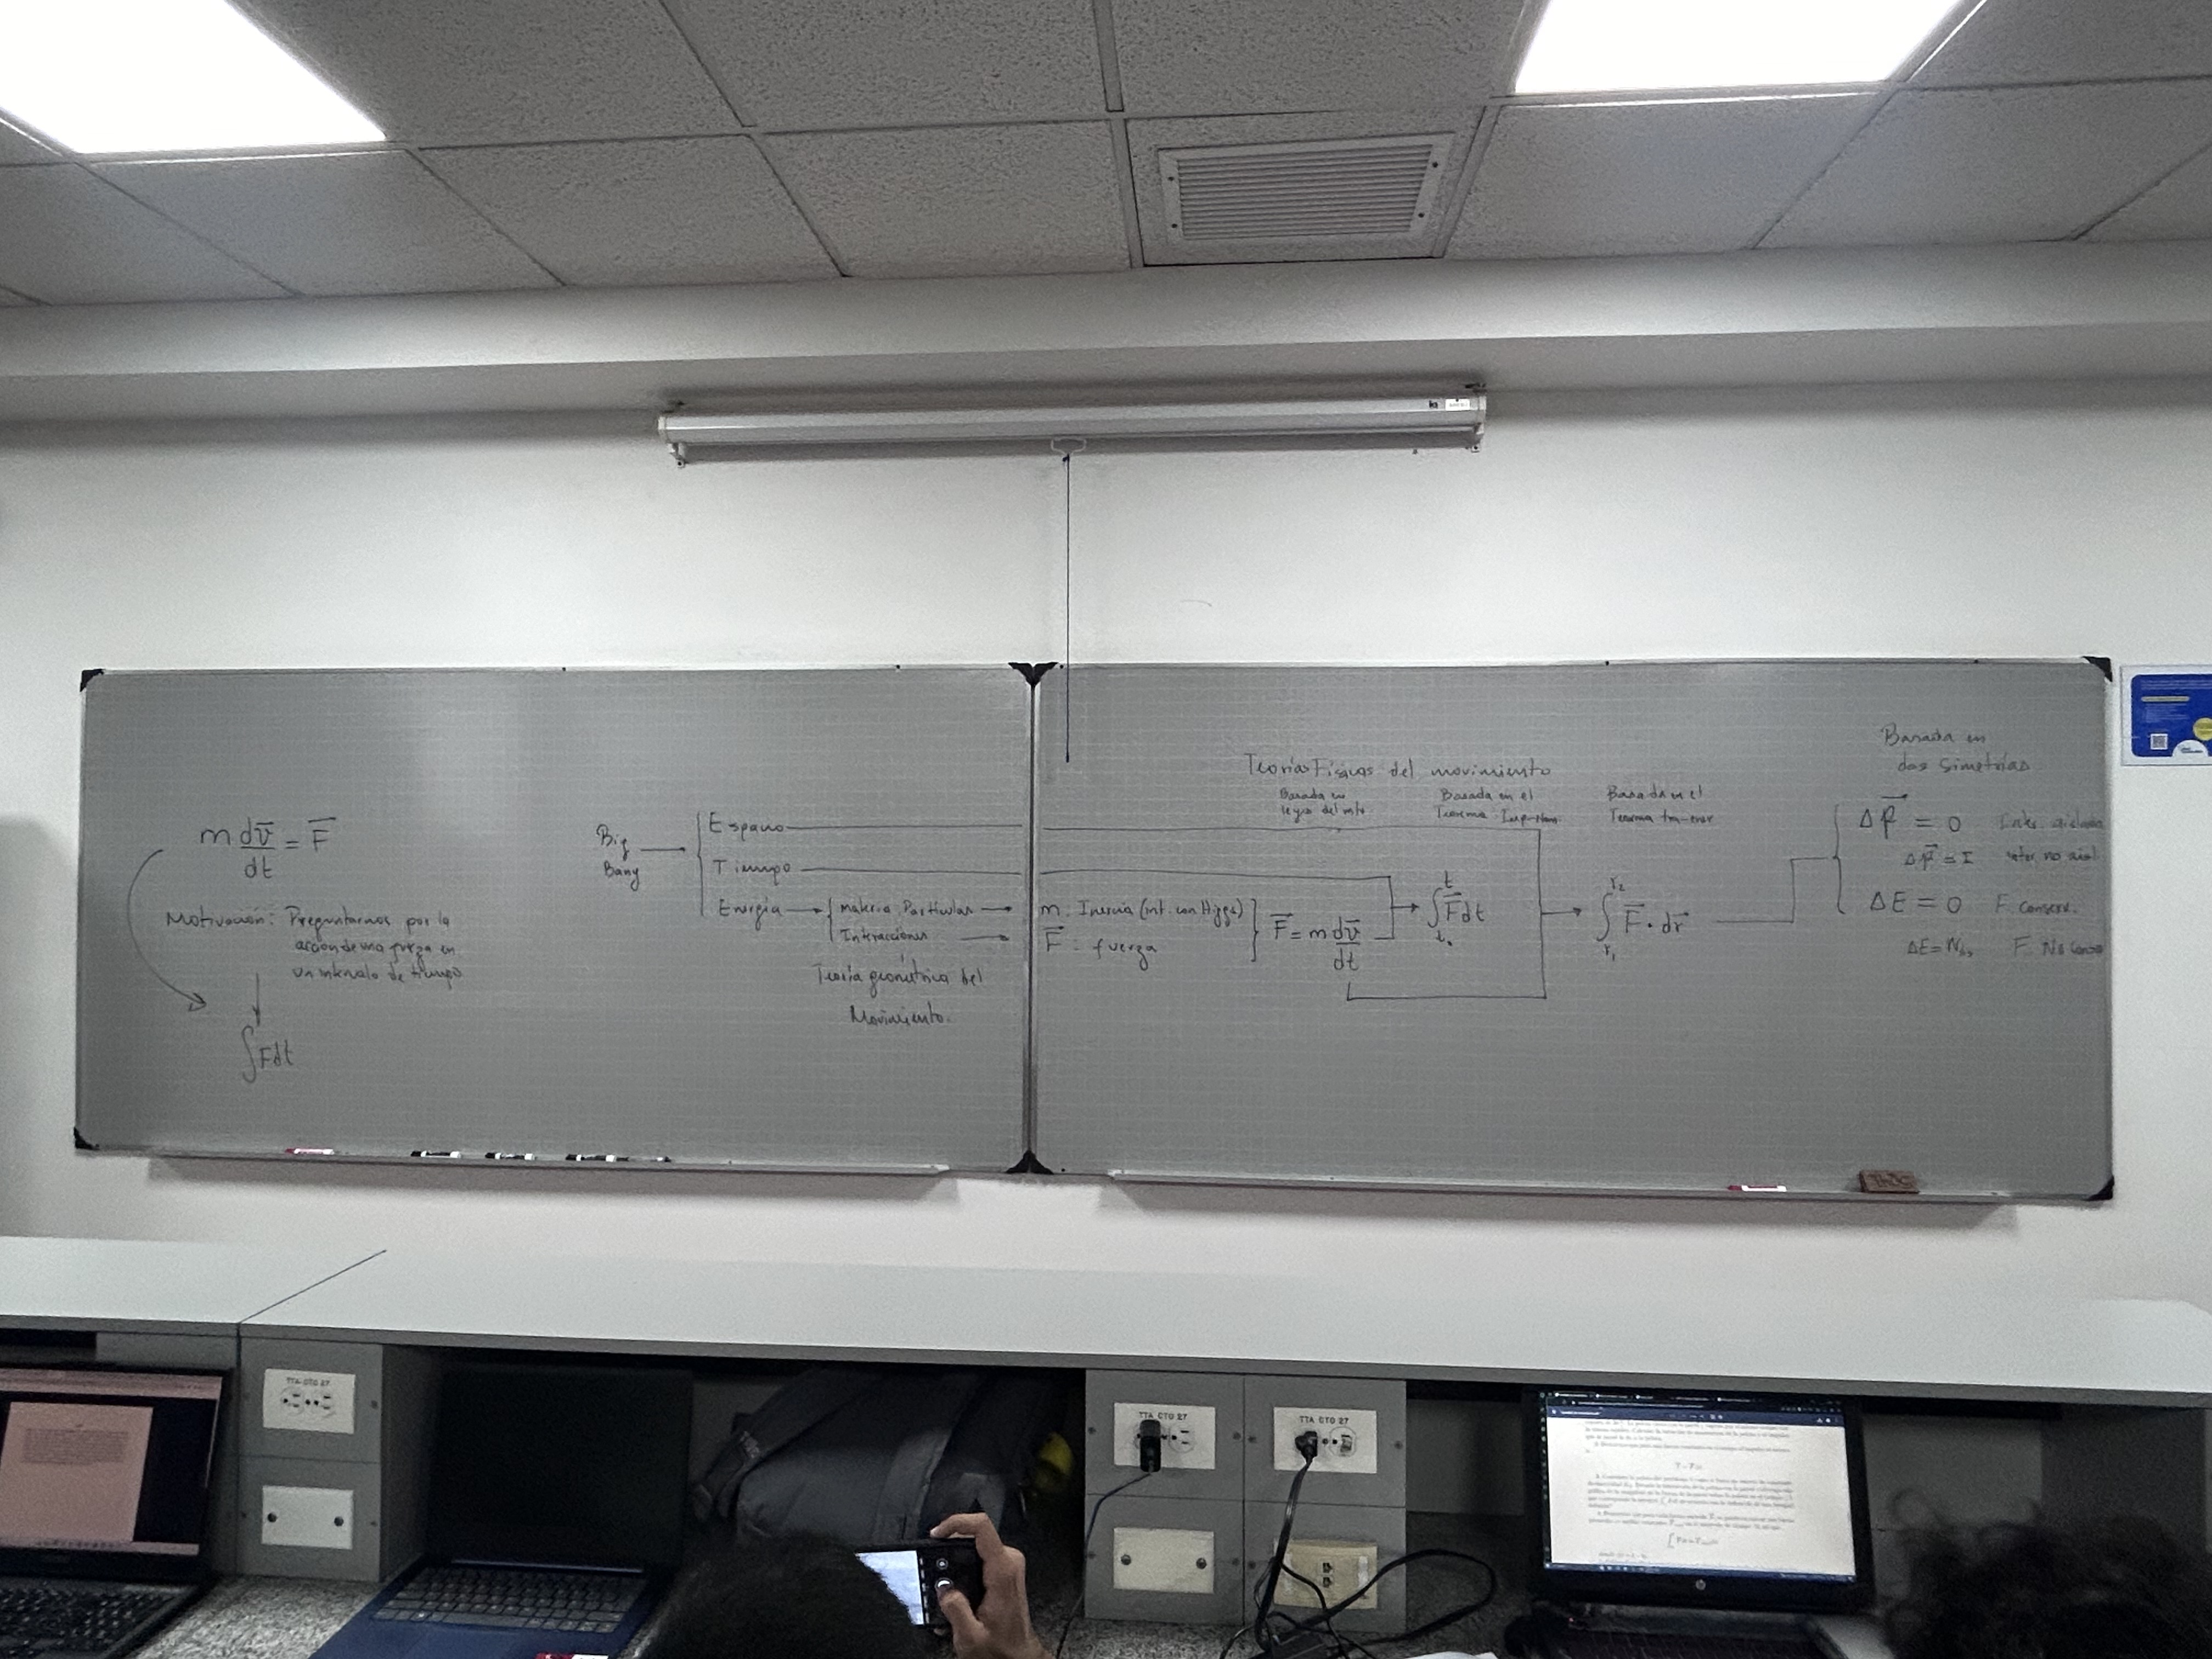 m dv̄/dt = F̄
Motivación: Preguntarnos por la
acción de una fuerza en
un intervalo de tiempo
∫Fdt
Big
Bang
Espacio
Tiempo
Energía
Materia, Partículas
Interacciones
Teoría geométrica del
Movimiento.
Teorías Físicas del movimiento
Basada en
leyes del mto.
Basada en el
Teorema Imp-Mom.
Basada en el
Teorema tra-ener
Basada en
dos Simetrías
m: Inercia (int. con Higgs)
F⃗: fuerza
F⃗ = m dv̄/dt
∫ F⃗dt
t
t₀
∫ F⃗ · dr⃗
r₂
r₁
Δp⃗ = 0
Δp⃗ = I
ΔE = 0 F. conserv.
ΔE = F. No
TTA CTO 27
TTA CTO 27
TTA CTO 27